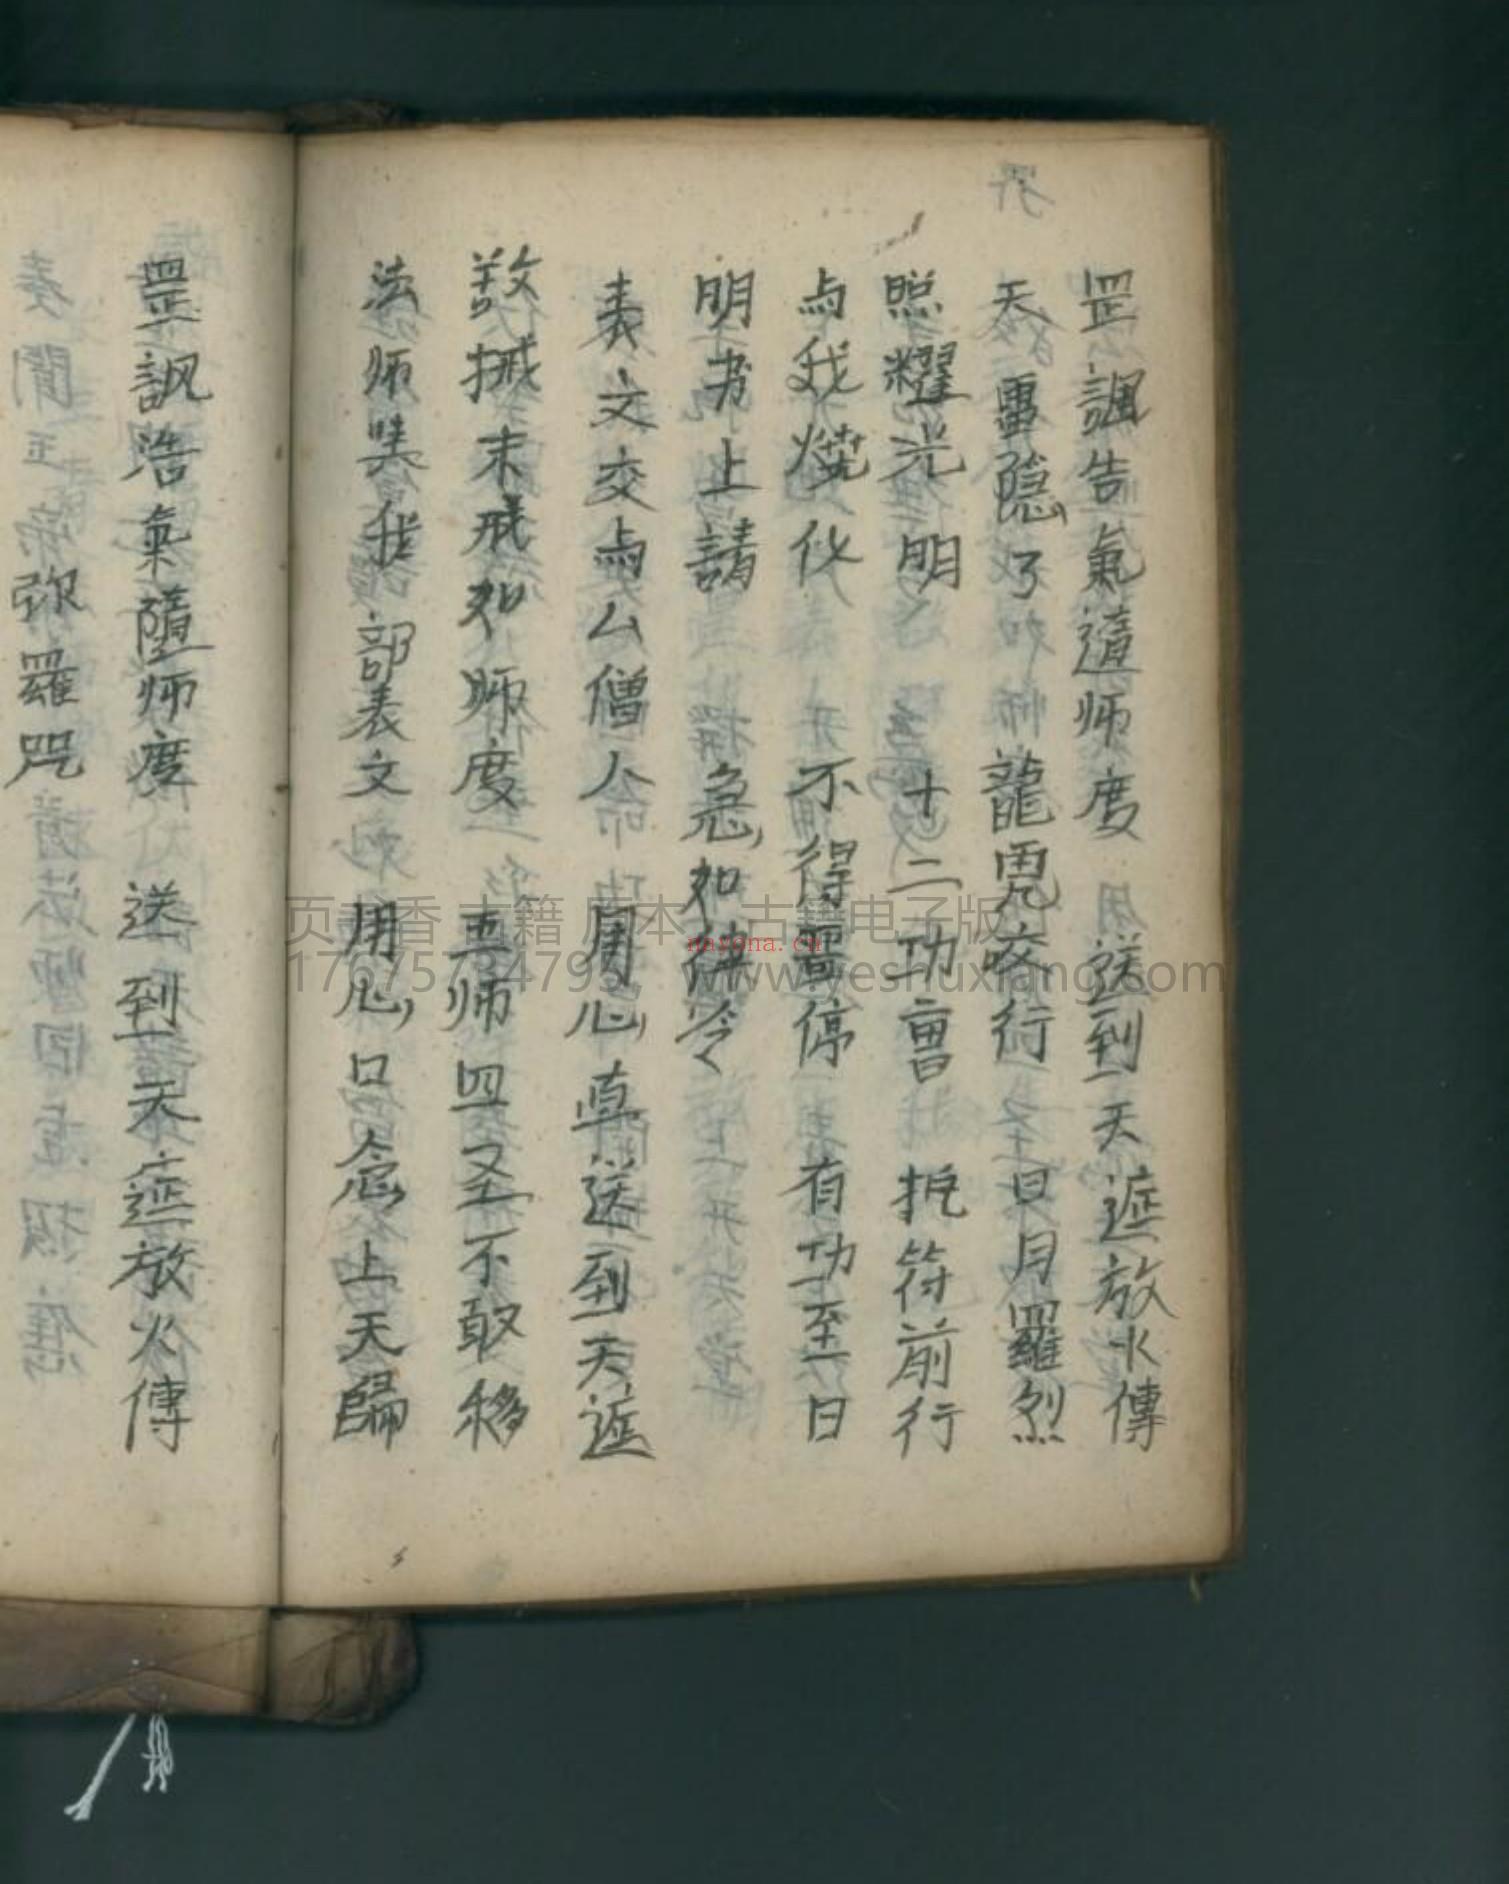 罡諷告氣遶师度 送到天遮放火傳
天雷隐了 龍虎咬行 日月羅烈
照耀光明 十二功曹 把符前行
与我燒化 不得畱停 有功至日
明书上請 急如律令
表文交与么僧人 用心真送到天遮
敬挷末戒如师度 真师四圣不敢移
法师 我部表文 用心口念上天歸
罡諷浩氣隨师度 送到天遮放火傳
弥羅咒
页书香 古籍 原本 古籍电子版
nayona.cn
www.yeshuxiang.com